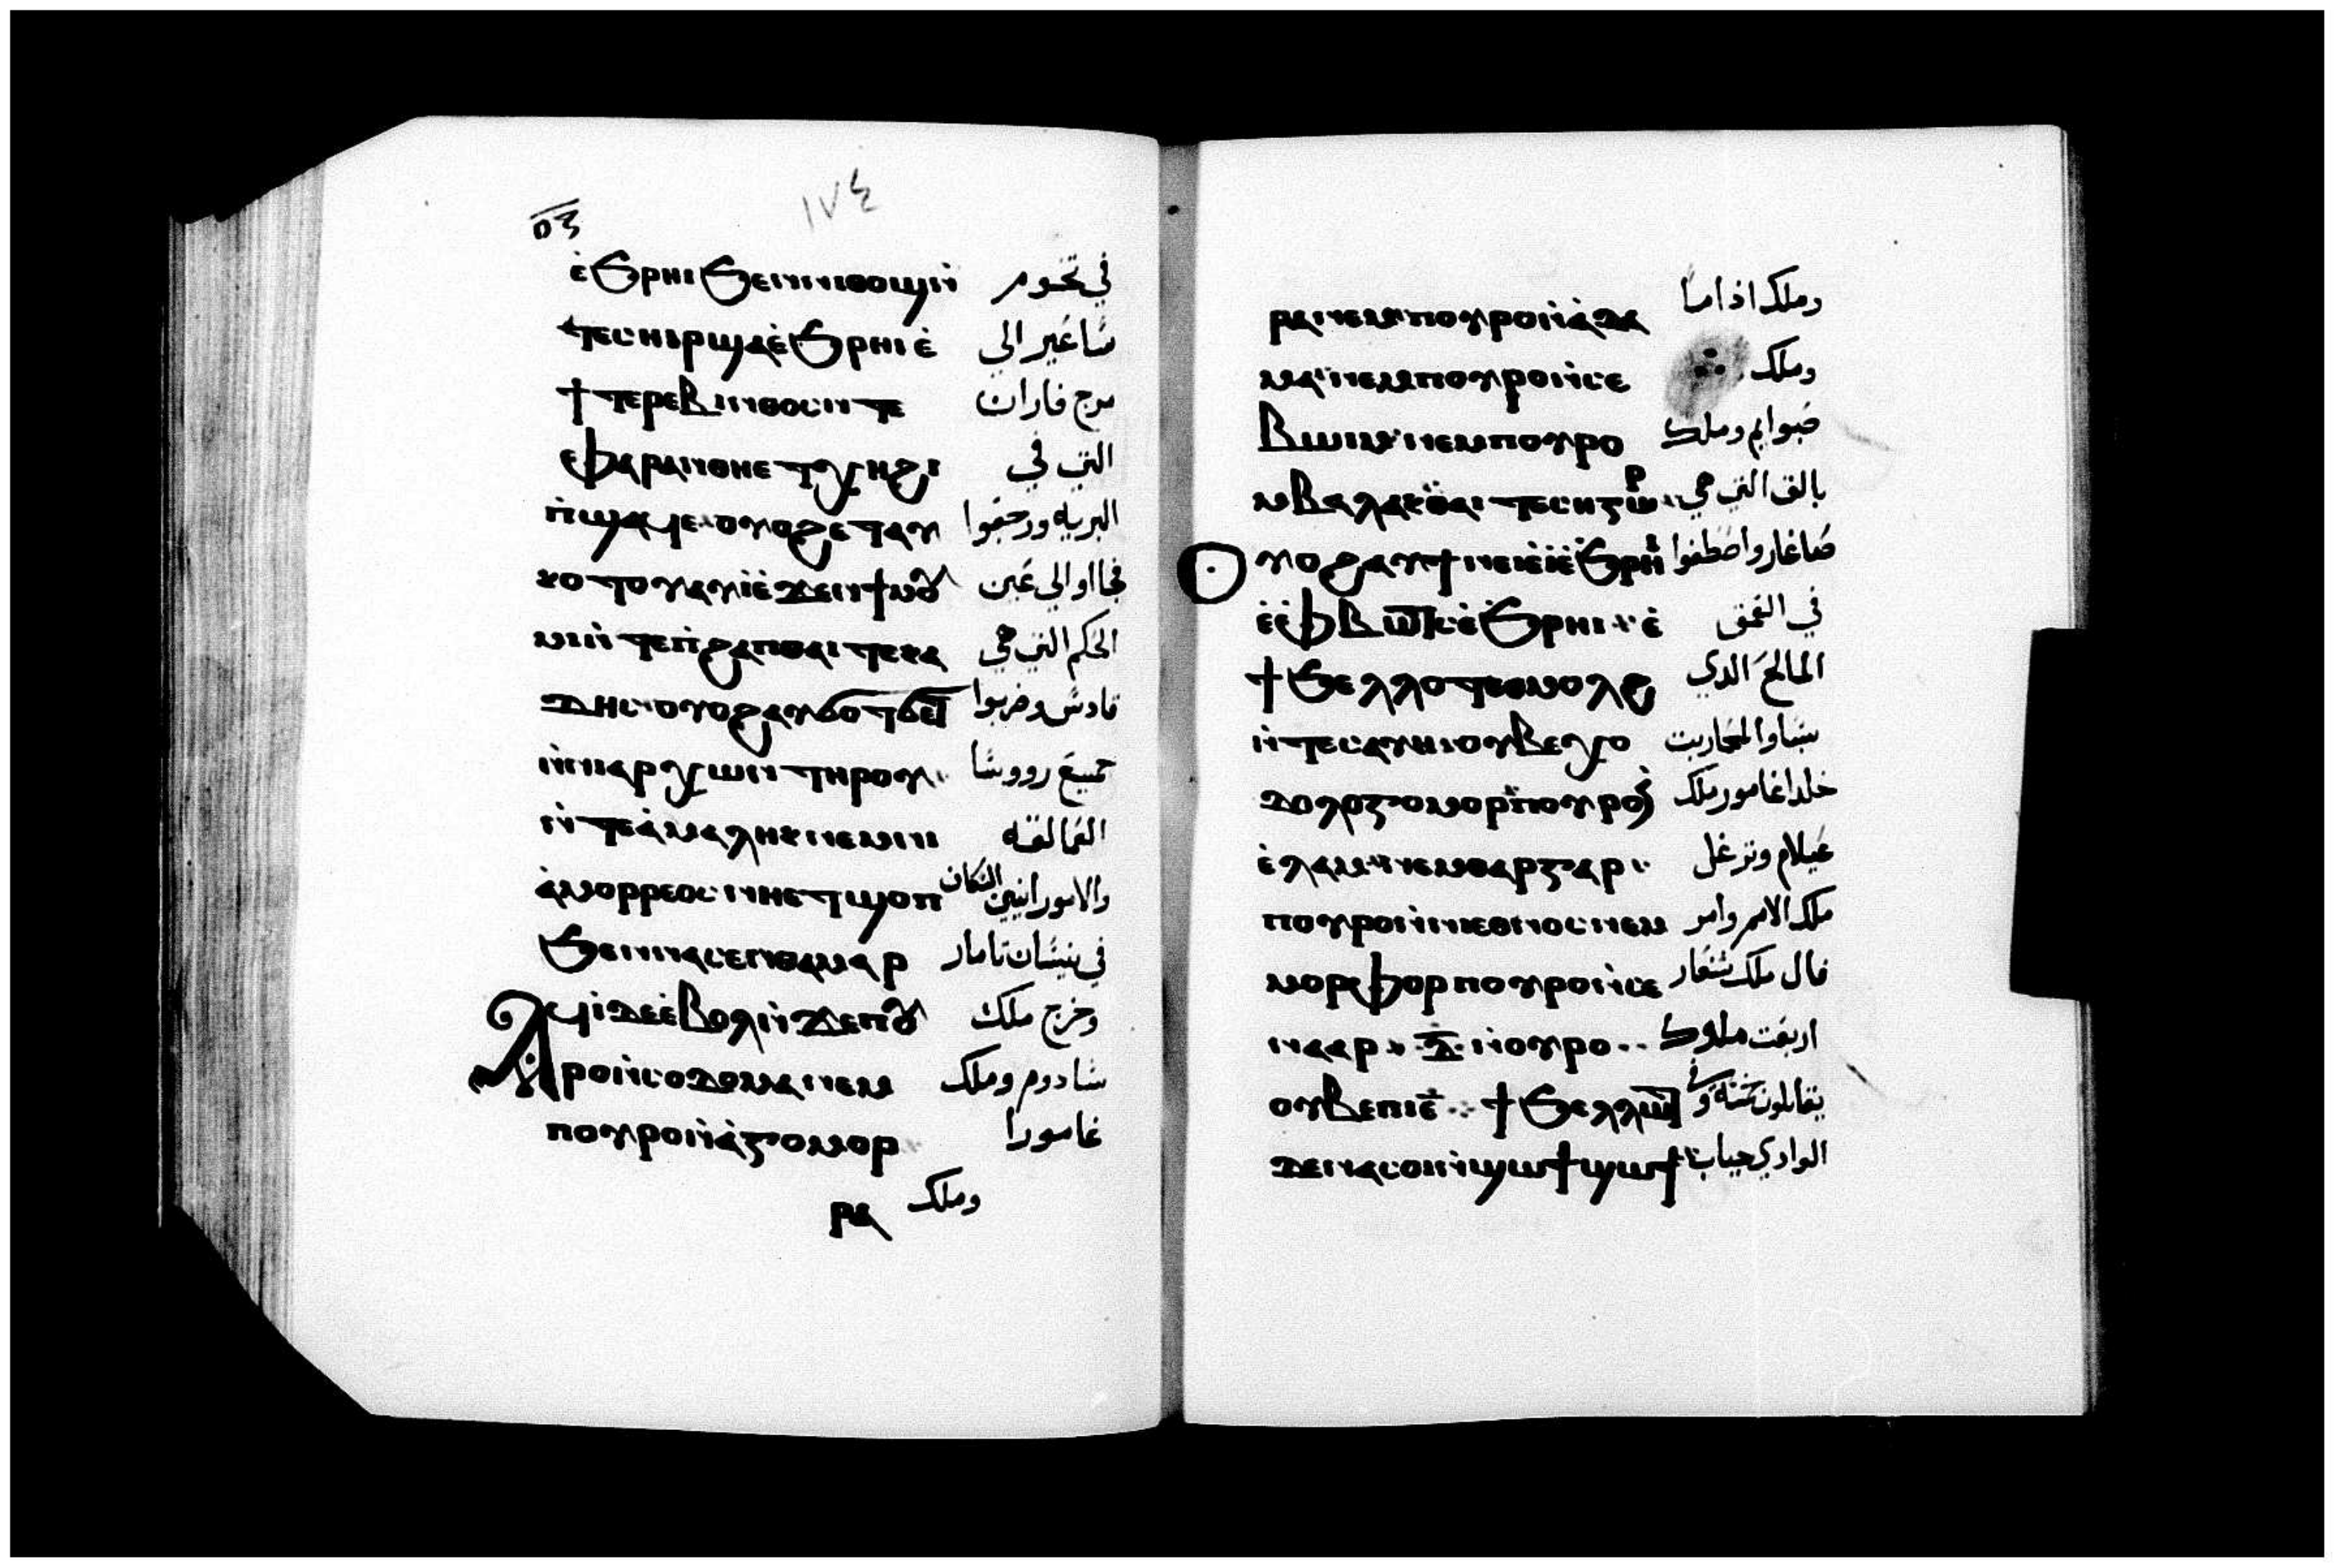 ١٧٤
ⲟⲅ
ⲉ̀ϧⲣⲏⲓ ϧⲉⲛⲛⲓⲑⲟϣ ⲛ̀ في تخوم
ⲧⲉⲥⲏⲓⲣ ϣⲁ ⲉ̀ϧⲣⲏⲓ ⲉ̀ ساغير الي
ϯⲧⲉⲣⲉⲃⲓⲛⲑⲟⲥ ⲛⲧⲉ مرج فاران
ⲫⲁⲣⲁⲛ ⲑⲏⲉⲧⲭⲏ ϩⲓ التي في
ⲡ̀ϣⲁϥⲉ ⲟⲩⲟϩ ⲉⲧⲁⲩ البريه ورجعوا
ⲕⲟⲧⲟⲩ ⲁⲩⲓ̀ ⲉ̀ⲇⲉⲛ ϯⲙⲟⲩ فجااو الي عين
ⲙⲓ ⲛ̀ⲧⲉ ⲡ̀ϩⲁⲡ ⲑⲁⲓ ⲧⲉ ⲕⲁ الحكم التي هي
ⲇⲏⲥ ⲟⲩⲟϩ ⲁⲩϭⲟⲧϭⲉⲧ قادس وضربوا
ⲛ̀ⲛⲓⲁⲣⲭⲱⲛ ⲧⲏⲣⲟⲩ جميع رووسا
ⲛ̀ⲧⲉ ⲁ̀ⲙⲁⲗⲏⲕ ⲛⲉⲙ ⲛⲓ العمالقه
ⲁ̀ⲙⲟⲣⲣⲉⲟⲥ ⲛⲏⲉⲧϣⲟⲡ والامورانيين السكان
ϧⲉⲛ ⲛⲁⲥⲉⲛⲑⲁⲙⲁⲣ في نيسان تامار
ⲁϥⲓ̀ ⲇⲉ ⲉ̀ⲃⲟⲗ ⲛ̀ⲇⲉ ⲡⲟⲩ وخرج ملك
ⲣⲟ ⲛ̀ⲥⲟⲇⲟⲙⲁ ⲛⲉⲙ سادوم وملك
ⲡⲟⲩⲣⲟ ⲛ̀ⲁ̀ⲅⲟⲙⲟⲣ غامورا
ⲣⲁ وملك
ⲣⲁ ⲛⲉⲙ ⲡⲟⲩⲣⲟ ⲛ̀ⲁ̀ⲇⲁ وملك اذاما
ⲙⲁ ⲛⲉⲙ ⲡⲟⲩⲣⲟ ⲛ̀ⲥⲉ وملك
ⲃⲱⲓⲙ ⲛⲉⲙ ⲡⲟⲩⲣⲟ صبوايم وملك
ⲙⲃⲁⲗⲁⲕ ⲑⲁⲓ ⲧⲉ ⲥⲏⲅⲱⲣ بالق التي هي
ⲟⲩⲟϩ ⲁⲩϯ ⲛⲉⲙ ⲉ̀ϧⲣⲏⲓ صاغار واصطفوا
ⲉ̀ⲫⲃⲱⲧⲥ ⲉ̀ϧⲣⲏⲓ ⲉ̀ في العمق
ϯϧⲉⲗⲗⲟⲧ ⲉⲑⲙⲟⲗϩ المالح الذي
ⲛ̀ⲧⲉ ⲥⲁⲩⲏ ⲟⲩⲃⲉ ⲭⲟ بساو المحاربت
ⲇⲟⲗⲟⲅⲟⲙⲟⲣ ⲡⲟⲩⲣⲟ ⲛ̀ خلداغامور ملك
ⲉ̀ⲗⲁⲙ ⲛⲉⲙ ⲑⲁⲣⲅⲁⲣ عيلام وترغل
ⲡⲟⲩⲣⲟ ⲛ̀ⲛⲓⲉⲑⲛⲟⲥ ⲛⲉⲙ ملك الامم وامر
ⲙⲟⲣⲫⲟⲣ ⲡⲟⲩⲣⲟ ⲛ̀ⲥⲉ فال ملك شنعار
ⲛⲁⲁⲣ ⲇ̅ ⲛ̀ⲟⲩⲣⲟ اربعت ملوك
ⲟⲩⲃⲉ ⲡⲓⲉ̅ ϯϧⲉⲗⲗⲱⲧ يقاتلون خمسة و
ⲇⲉ ⲛⲁⲥⲟⲓ ⲛ̀ϣⲱϯ ϣⲱϯ الوادي جباب